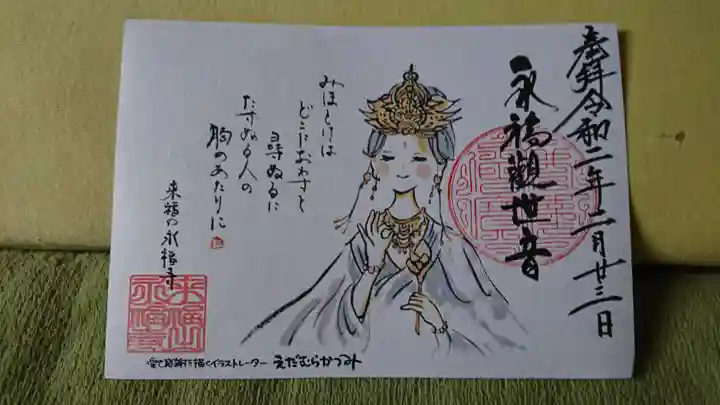 奉拝 令和二年二月廿三日
永福觀世音
みほとけは
どこにおわすと
尋ぬるに
たずぬる人の
胸のあたりに
来福山 永福寺
来福山
永福寺
愛と感謝を描くイラストレーター えだむらかつみ